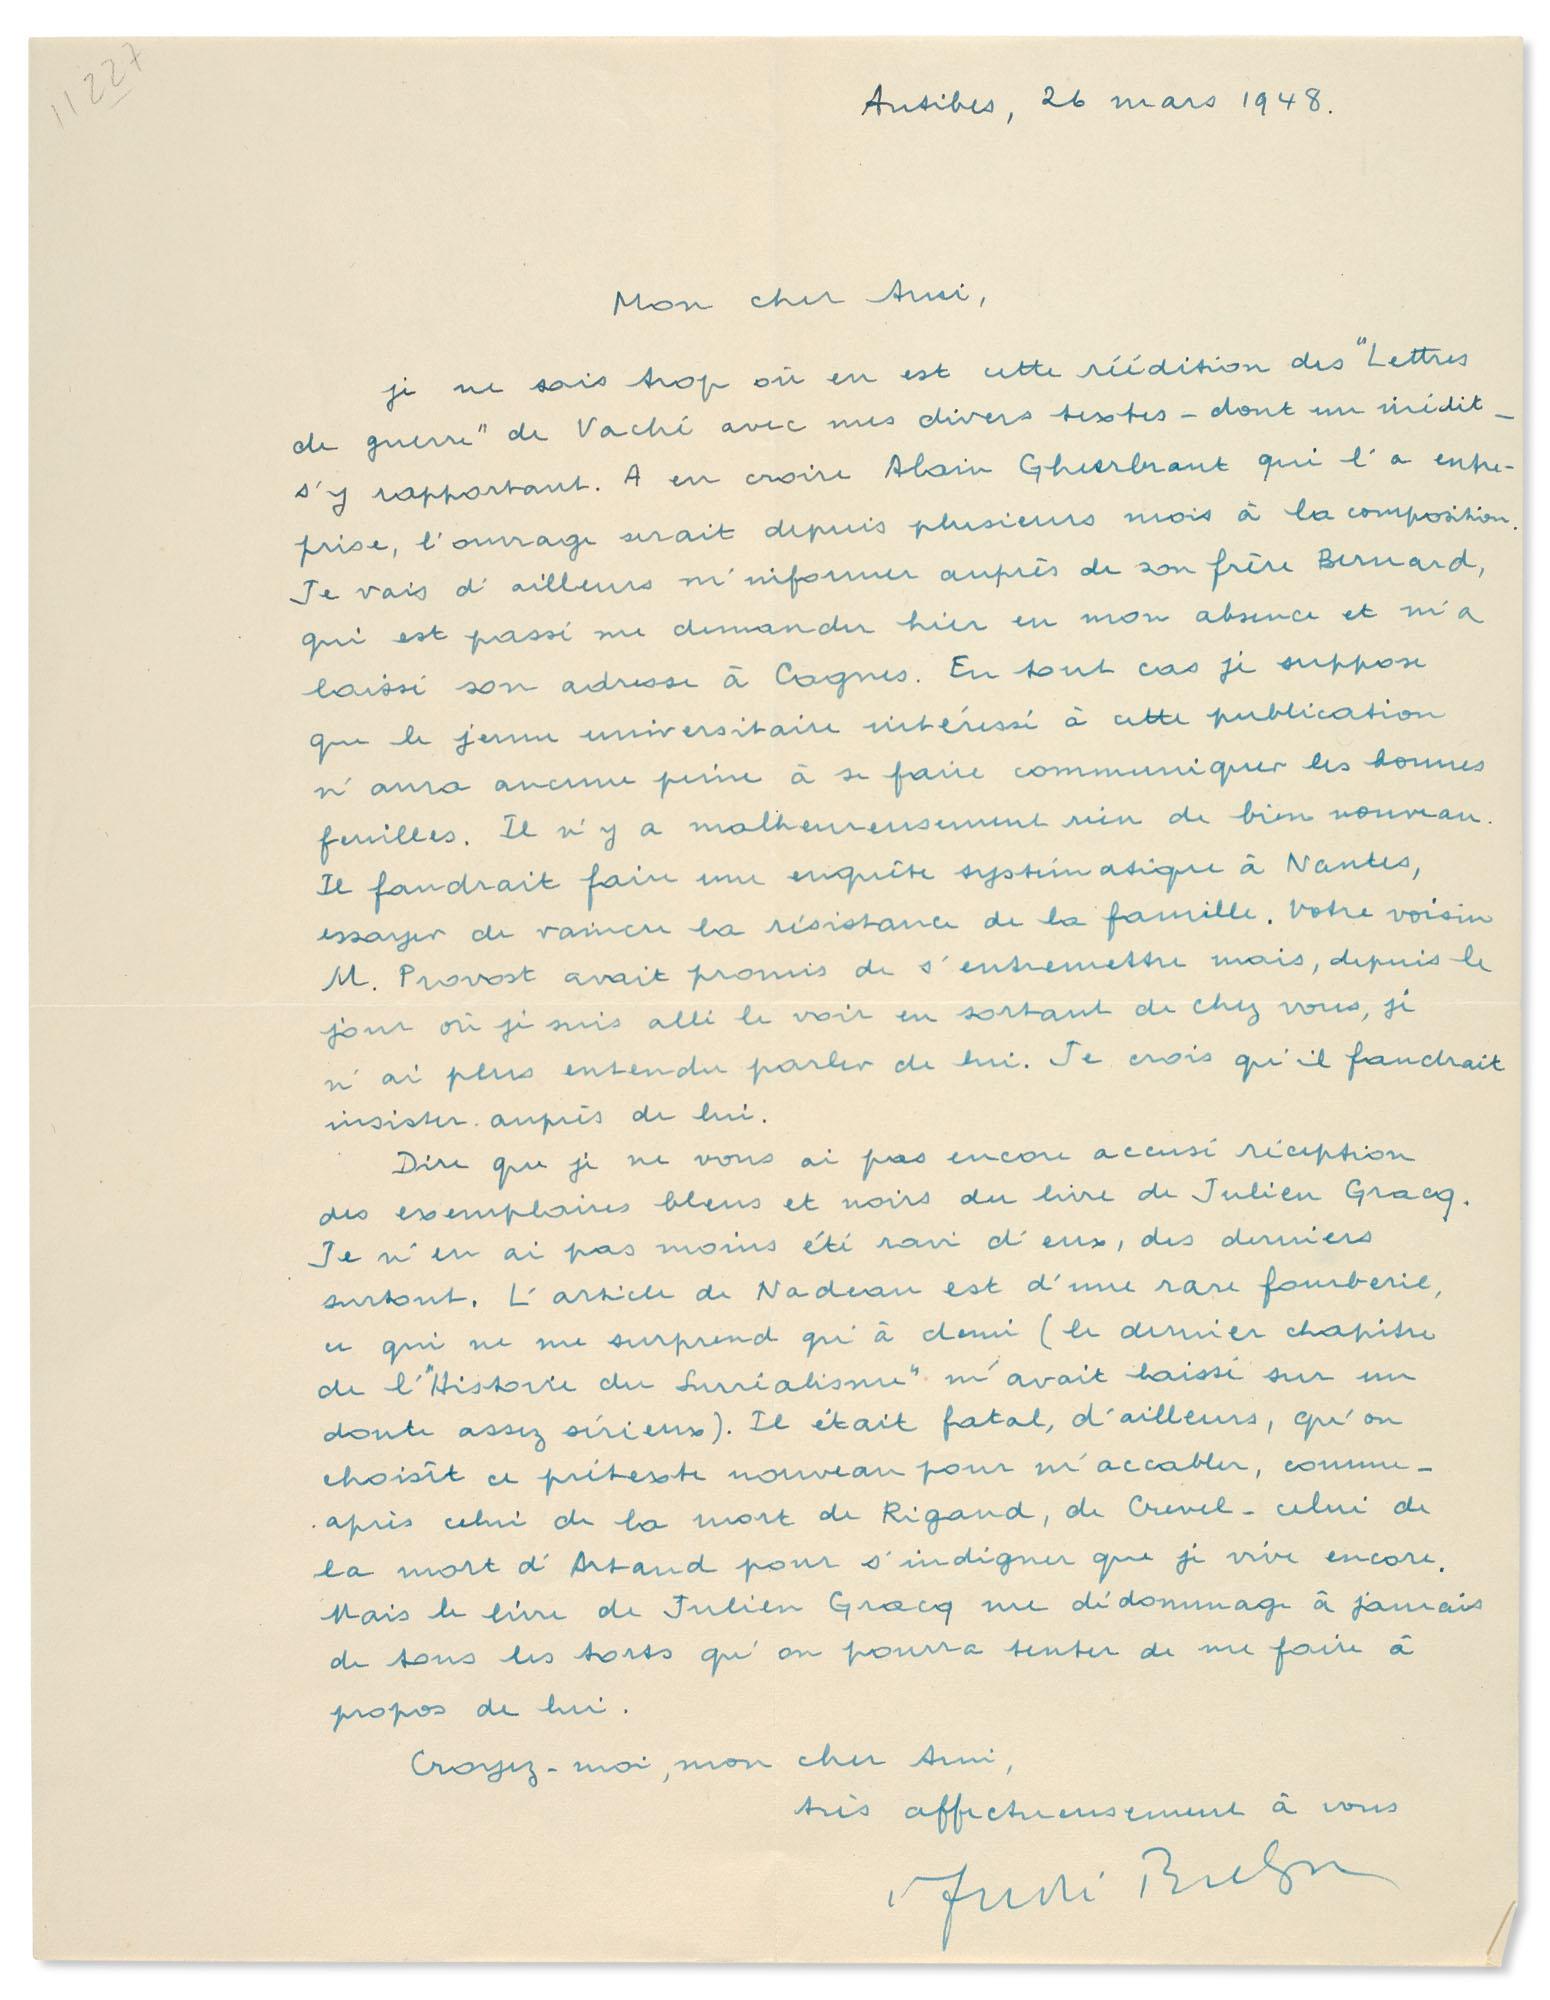 11227
Antibes, 26 mars 1948.
Mon cher Ami,
je ne sais trop où en est cette réédition des "Lettres
de guerre" de Vaché avec mes divers textes – dont un inédit –
s'y rapportant. A en croire Alain Gheerbrant qui l'a entre-
prise, l'ouvrage serait depuis plusieurs mois à la composition.
Je vais d'ailleurs m'informer auprès de son frère Bernard,
qui est passé me demander hier en mon absence et m'a
laissé son adresse à Cagnes. En tout cas je suppose
que le jeune universitaire intéressé à cette publication
n'aura aucune peine à se faire communiquer les bonnes
feuilles. Il n'y a malheureusement rien de bien nouveau.
Il faudrait faire une enquête systématique à Nantes,
essayer de vaincre la résistance de la famille. Votre voisin
M. Provost avait promis de s'entremettre mais, depuis le
jour où je suis allé le voir en sortant de chez vous, je
n'ai plus entendu parler de lui. Je crois qu'il faudrait
insister auprès de lui.
Dire que je ne vous ai pas encore accusé réception
des exemplaires bleus et noirs du livre de Julien Gracq.
Je n'en ai pas moins été ravi d'eux, des derniers
surtout. L'article de Nadeau est d'une rare fourberie,
ce qui ne me surprend qu'à demi (le dernier chapitre
de l'"Histoire du Surréalisme" m'avait laissé sur un
doute assez sérieux). Il était fatal, d'ailleurs, qu'on
choisît ce prétexte nouveau pour m'accabler, comme –
après celui de la mort de Rigaud, de Crevel – celui de
la mort d'Artaud pour s'indigner que je vive encore.
Mais le livre de Julien Gracq me dédommage à jamais
de tous les torts qu'on pourra tenter de me faire à
propos de lui.
Croyez-moi, mon cher Ami,
très affectueusement à vous
André Breton